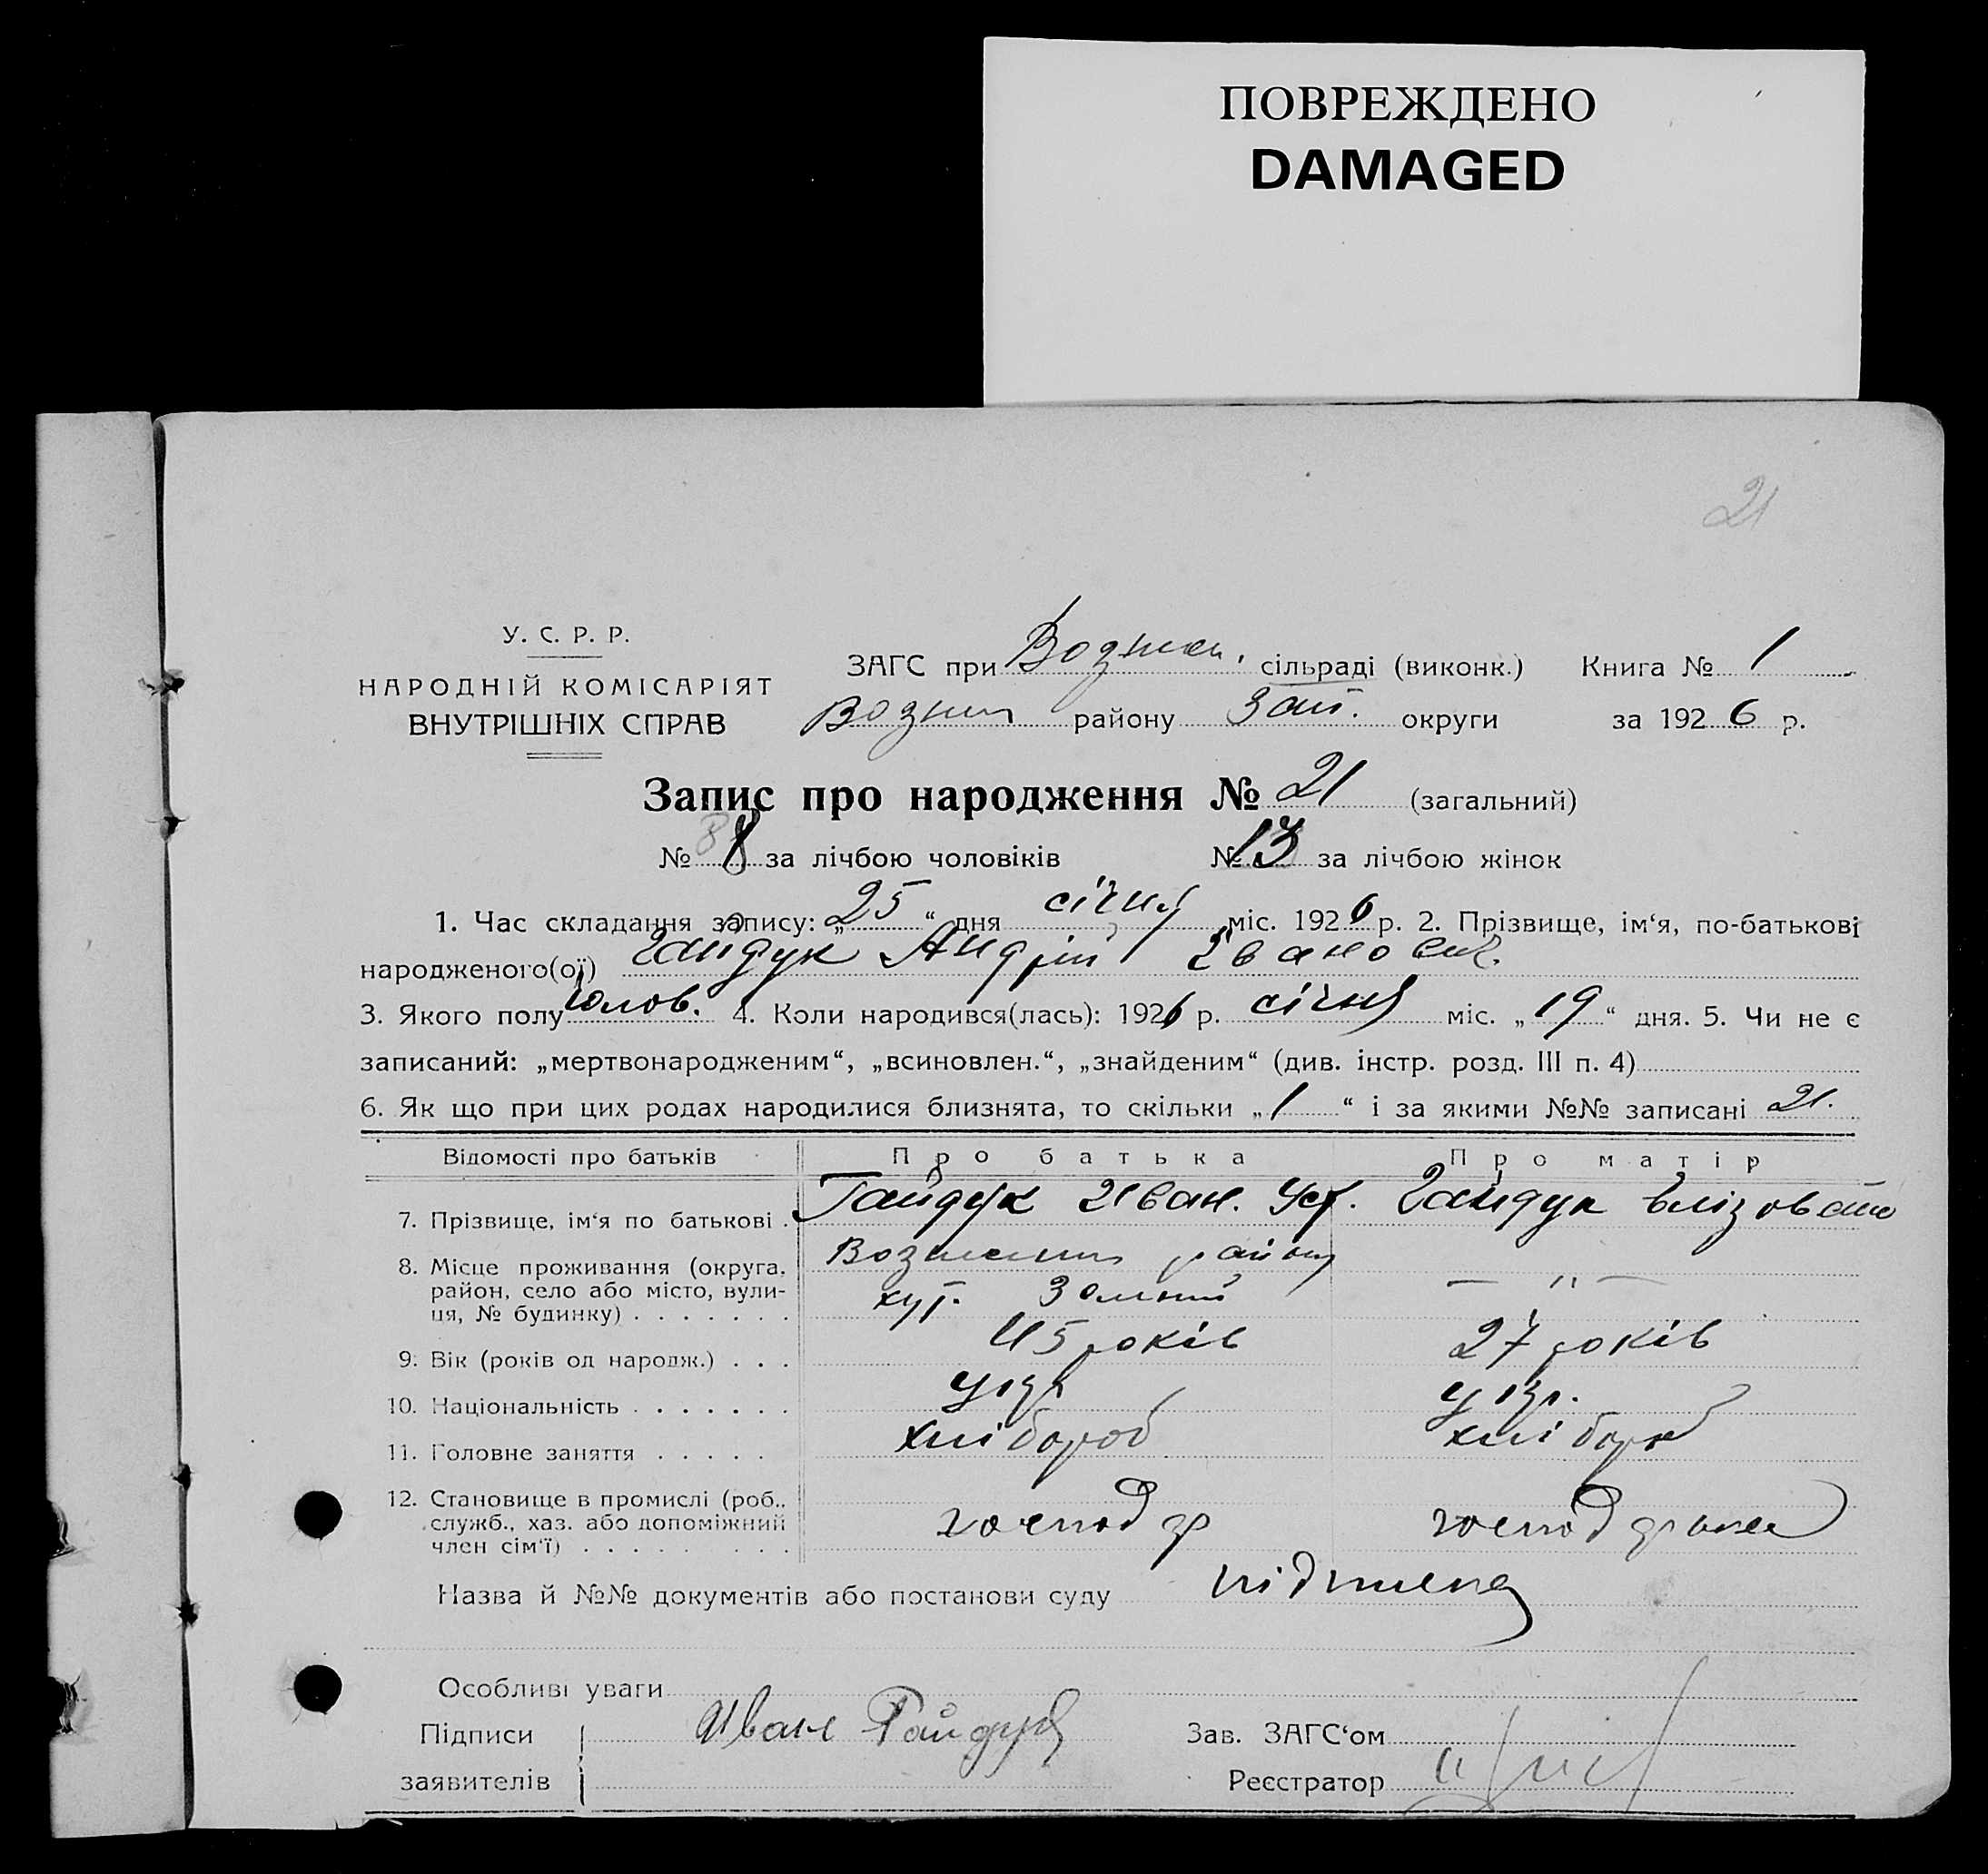 ПОВРЕЖДЕНО
DAMAGED
21
У. С. Р. Р.
НАРОДНІЙ КОМІСАРІЯТ
ВНУТРІШНІХ СПРАВ
ЗАГС при сільраді (виконк.) Книга № 1
району Зап. округи за 1926 р.
Запис про народження № 21 (загальний)
№ 8 за лічбою чоловіків № 13 за лічбою жінок
1. Час складання запису: „25“ дня січня міс. 1926 р. 2. Прізвище, ім‘я, по-батькові
народженого(ої) Гайдук Андрій Іванович.
3. Якого полу чолов. 4. Коли народився(лась): 1926 р. січня міс. „19“ дня. 5. Чи не є
записаний: „мертвонародженим“, „всиновлен.“, „знайденим“ (див. інстр. розд. III п. 4)
6. Як що при цих родах народилися близнята, то скільки „1“ і за якими №№ записані 21.
Відомості про батьків Про батька Про матір
7. Прізвище, ім‘я по батькові . Гайдук Иван. Гайдук
8. Місце проживання (округа, району
район, село або місто, вули- хут. — " —
ця, № будинку) . . . . . . .
9. Вік (років од народж.) . . . 45 років 27 років
10. Національність . . . . . . . укр укр.
11. Головне заняття . . . . . хлібороб хлібороб
12. Становище в промислі (роб..
служб., хаз. або допоміжний господар
член сім‘ї) . . . . . . . . .
Назва й №№ документів або постанови суду
Особливі уваги
Підписи Иван Гайдук Зав. ЗАГС‘ом
заявителів Реєстратор